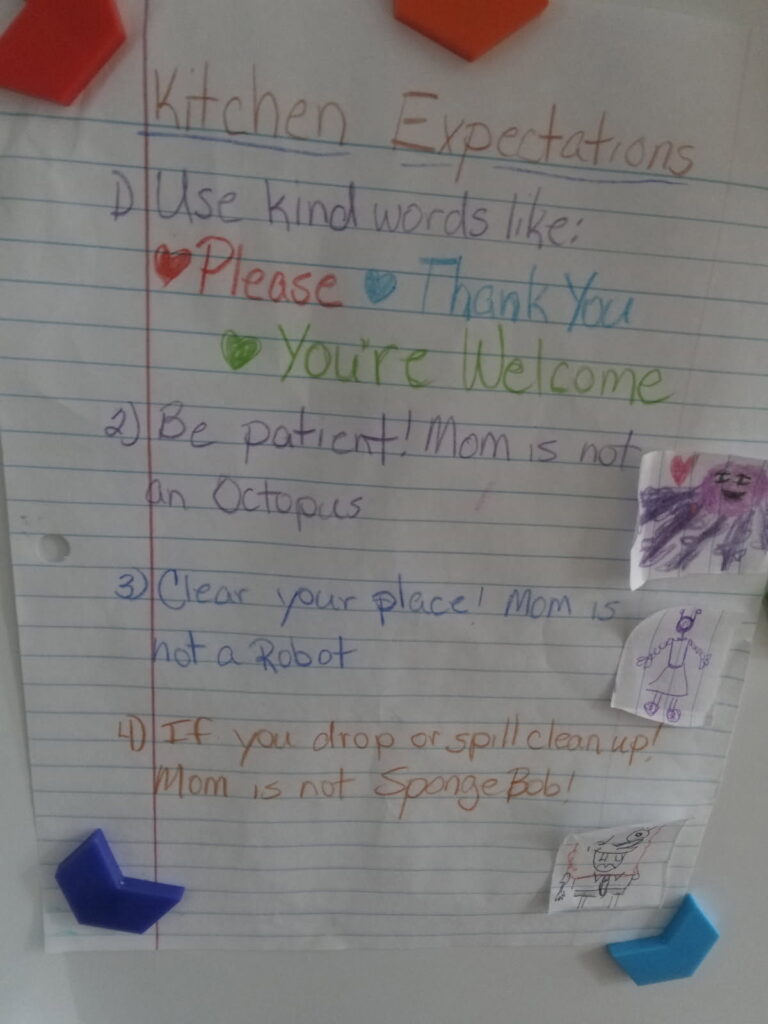 Kitchen Expectations
1) Use kind words like:
Please Thank You
You're Welcome
2) Be patient! Mom is not
an Octopus
3) Clear your place! Mom is
not a Robot
4) If you drop or spill clean up!
Mom is not SpongeBob!